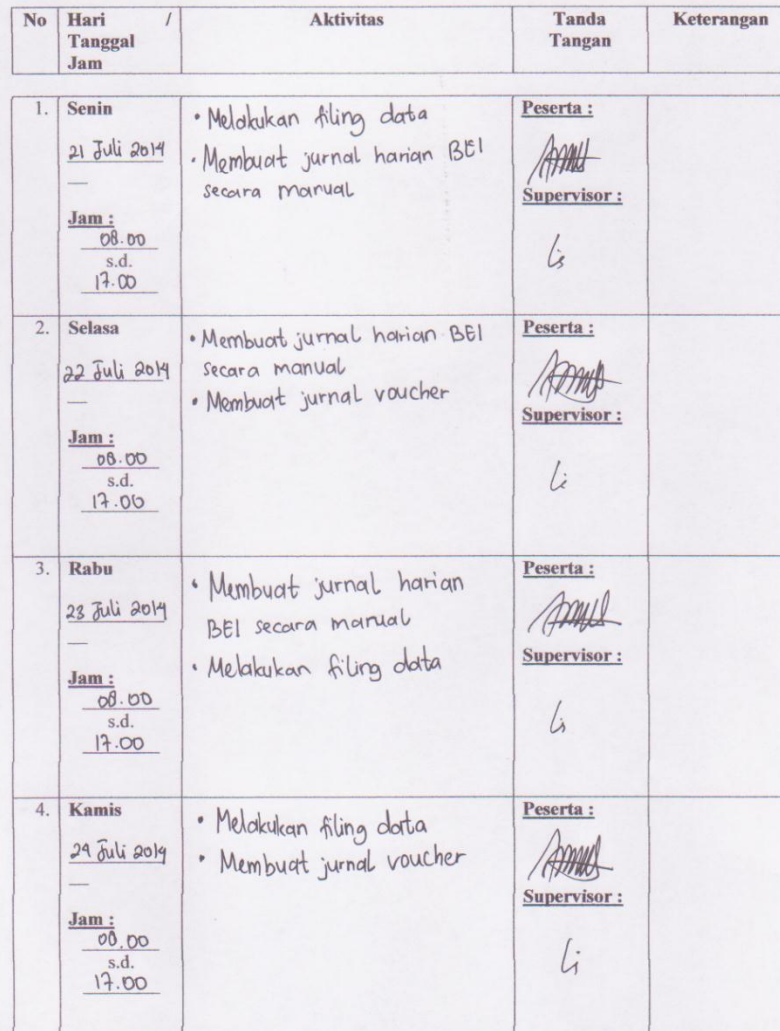 No Hari / Aktivitas Tanda Keterangan
Tanggal Tangan
Jam
1. Senin
21 Juli 2014
Jam :
08.00
s.d.
17.00
• Melakukan filing data
• Membuat jurnal harian BEI
secara manual
Peserta :
Supervisor :
2. Selasa
22 Juli 2014
Jam :
08.00
s.d.
17.00
• Membuat jurnal harian BEI
secara manual
• Membuat jurnal voucher
Peserta :
Supervisor :
3. Rabu
23 Juli 2014
Jam :
08.00
s.d.
17.00
• Membuat jurnal harian
BEI secara manual
• Melakukan filing data
Peserta :
Supervisor :
4. Kamis
24 Juli 2014
Jam :
08.00
s.d.
17.00
• Melakukan filing data
• Membuat jurnal voucher
Peserta :
Supervisor :